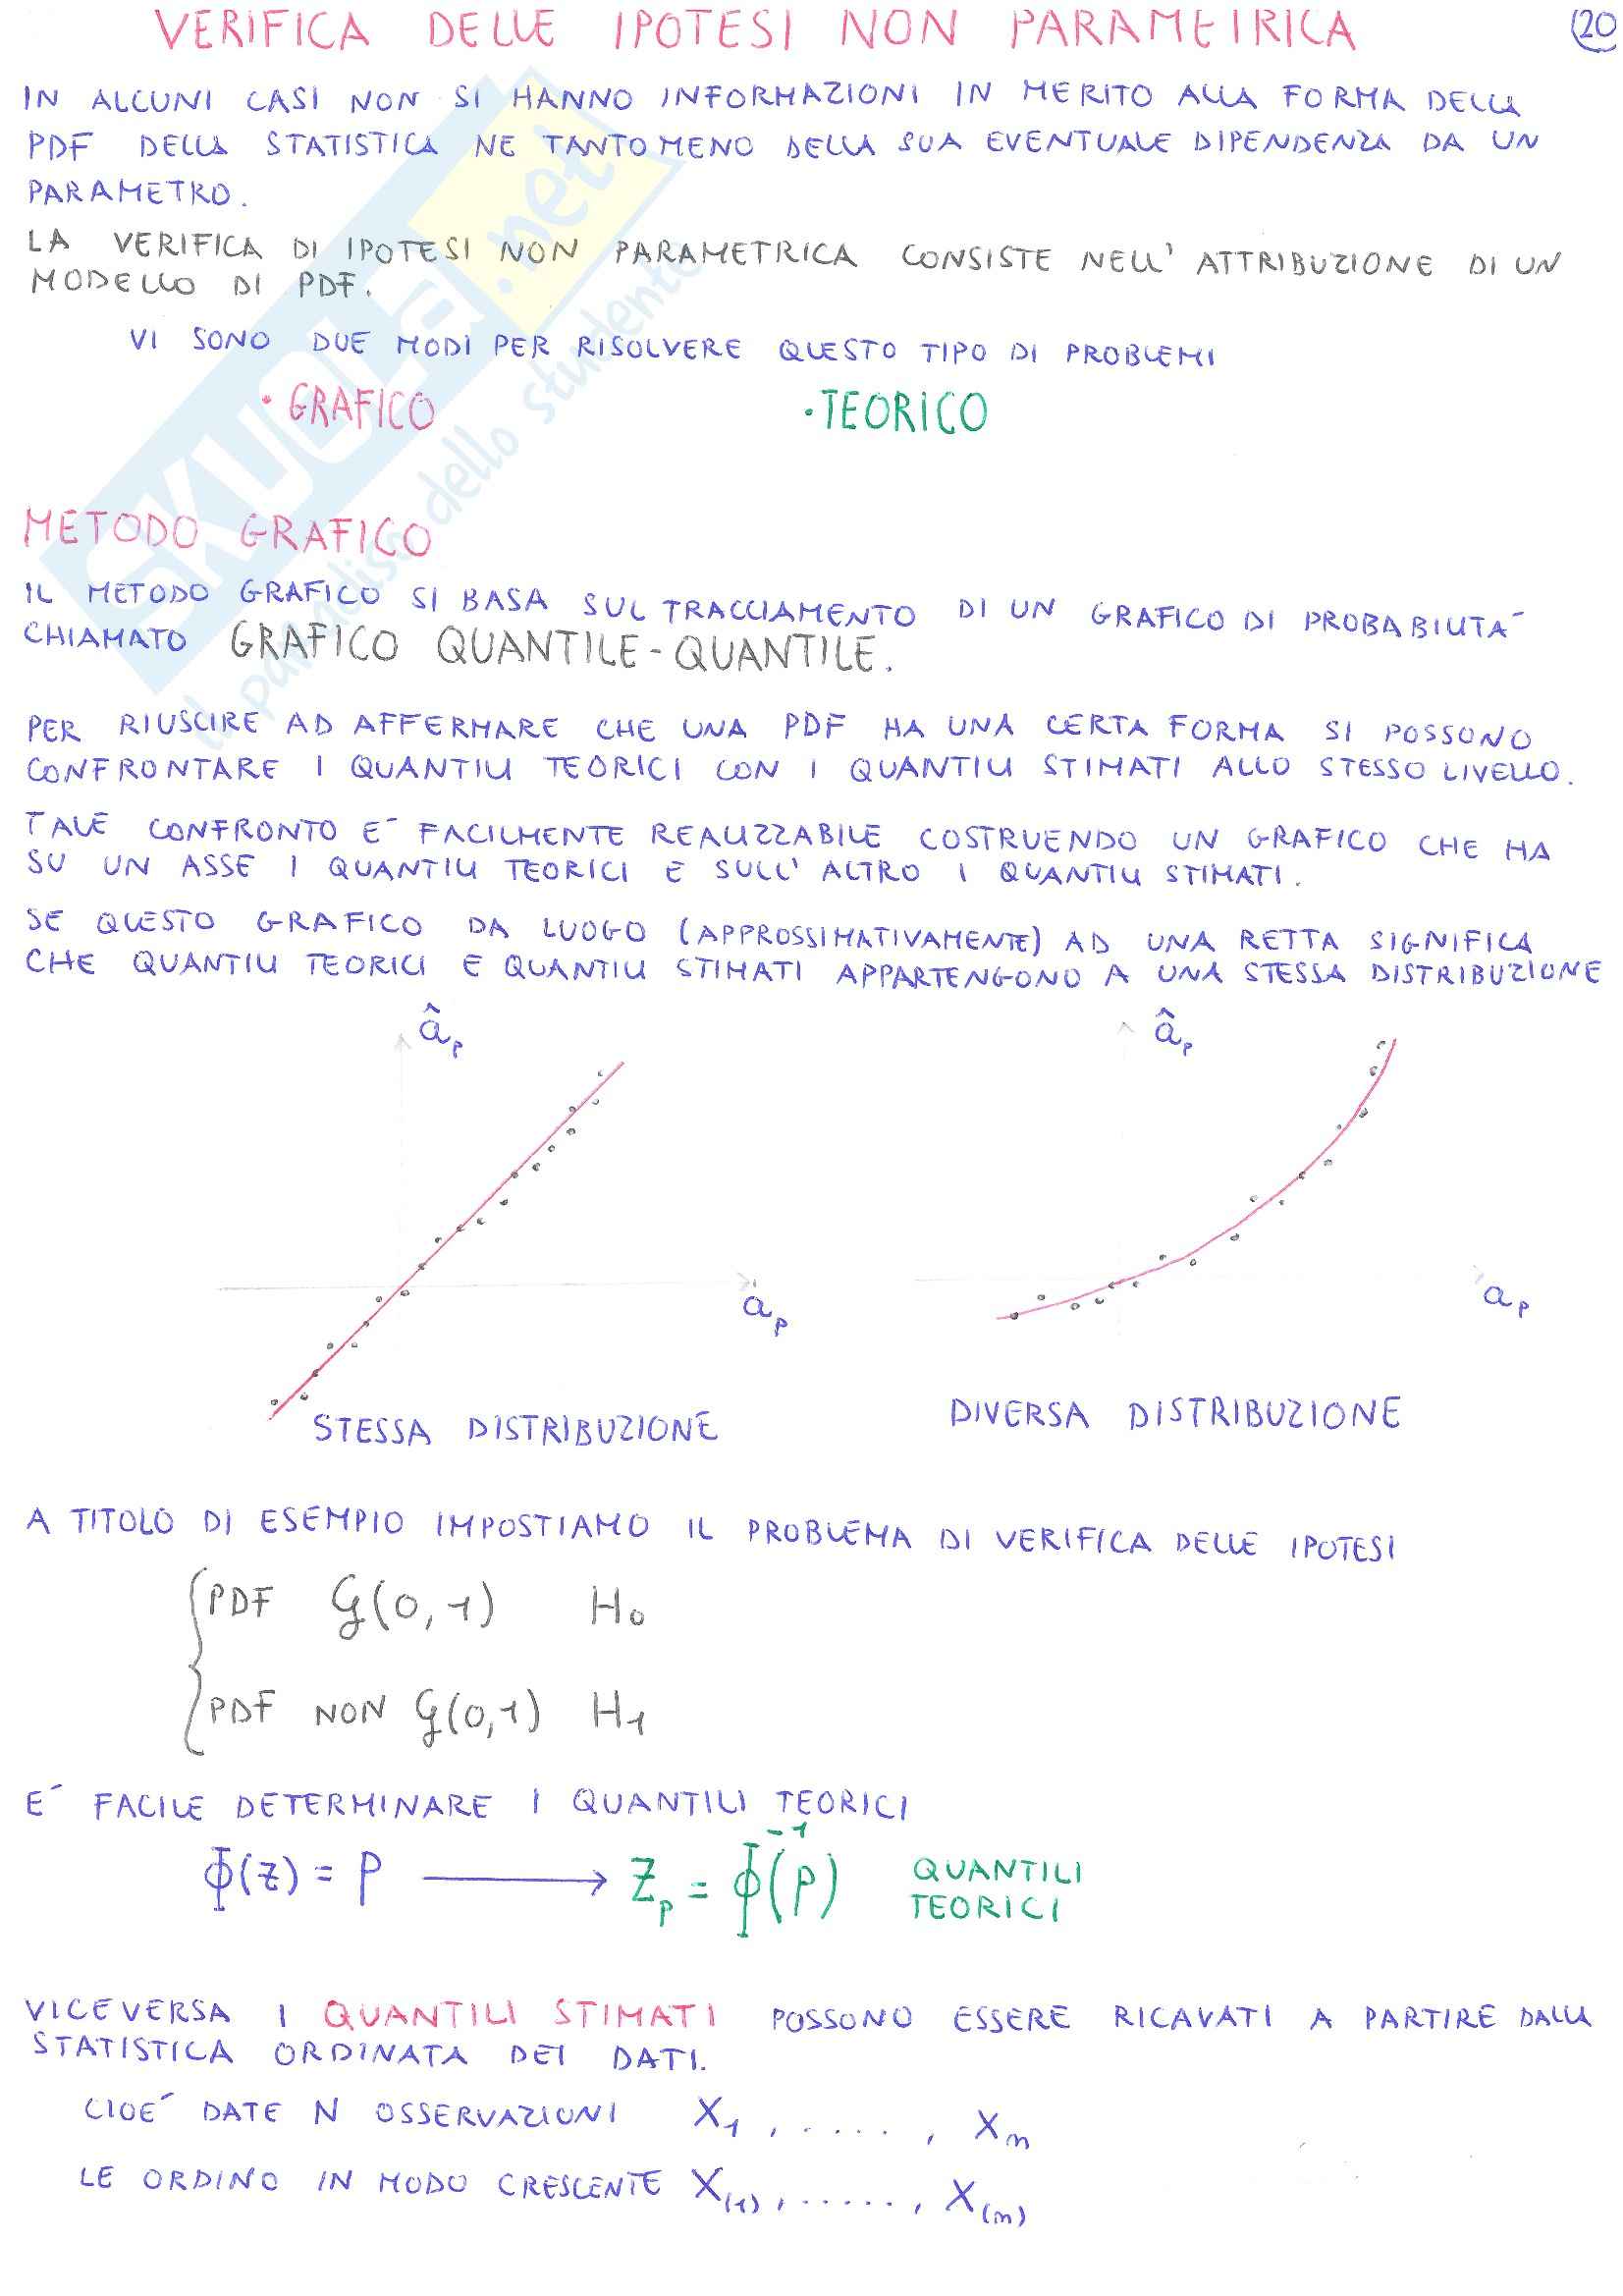 VERIFICA DELLE IPOTESI NON PARAMETRICA
20
IN ALCUNI CASI NON SI HANNO INFORMAZIONI IN MERITO ALLA FORMA DELLA
PDF DELLA STATISTICA NE TANTOMENO DELLA SUA EVENTUALE DIPENDENZA DA UN
PARAMETRO.
LA VERIFICA DI IPOTESI NON PARAMETRICA CONSISTE NELL'ATTRIBUZIONE DI UN
MODELLO DI PDF.
VI SONO DUE MODI PER RISOLVERE QUESTO TIPO DI PROBLEMI
• GRAFICO • TEORICO
METODO GRAFICO
IL METODO GRAFICO SI BASA SUL TRACCIAMENTO DI UN GRAFICO DI PROBABILITA´
CHIAMATO GRAFICO QUANTILE-QUANTILE.
PER RIUSCIRE AD AFFERMARE CHE UNA PDF HA UNA CERTA FORMA SI POSSONO
CONFRONTARE I QUANTILI TEORICI CON I QUANTILI STIMATI ALLO STESSO LIVELLO.
TALE CONFRONTO E´ FACILMENTE REALIZZABILE COSTRUENDO UN GRAFICO CHE HA
SU UN ASSE I QUANTILI TEORICI E SULL'ALTRO I QUANTILI STIMATI.
SE QUESTO GRAFICO DA LUOGO (APPROSSIMATIVAMENTE) AD UNA RETTA SIGNIFICA
CHE QUANTILI TEORICI E QUANTILI STIMATI APPARTENGONO A UNA STESSA DISTRIBUZIONE
â_p â_p
a_p a_p
STESSA DISTRIBUZIONE DIVERSA DISTRIBUZIONE
A TITOLO DI ESEMPIO IMPOSTIAMO IL PROBLEMA DI VERIFICA DELLE IPOTESI
{ PDF G(0,1) H₀
PDF NON G(0,1) H₁
E´ FACILE DETERMINARE I QUANTILI TEORICI
Φ(z) = P → Z_p = Φ⁻¹(P) QUANTILI
TEORICI
VICEVERSA I QUANTILI STIMATI POSSONO ESSERE RICAVATI A PARTIRE DALLA
STATISTICA ORDINATA DEI DATI.
CIOE´ DATE N OSSERVAZIONI X₁, ....., X_n
LE ORDINO IN MODO CRESCENTE X₍₁₎, ......, X₍n₎
SKUOLA.net
il paradiso dello studente